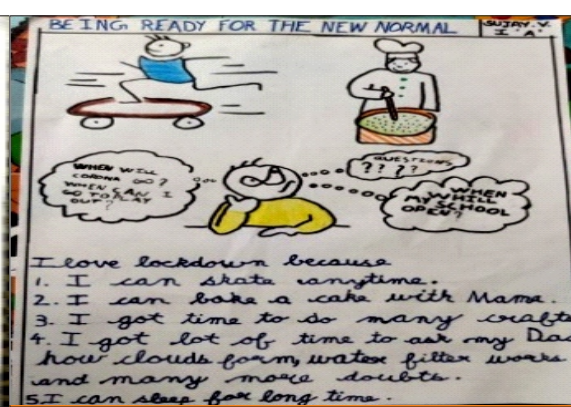 BEING READY FOR THE NEW NORMAL
SUJAY.V.
I.A.
WHEN WILL
CORONA GO?
WHEN CAN I
GO TO PLAY
OUT?
QUESTIONS
? ? ? ?
WHEN
WHILL
MY SCHOOL
OPEN?
I love lockdown because
1. I can skate anytime.
2. I can bake a cake with Mama.
3. I got time to do many crafts
4. I got lot of time to ask my Dad
how clouds form, water filter works
and many more doubts.
5.I can sleep for long time.